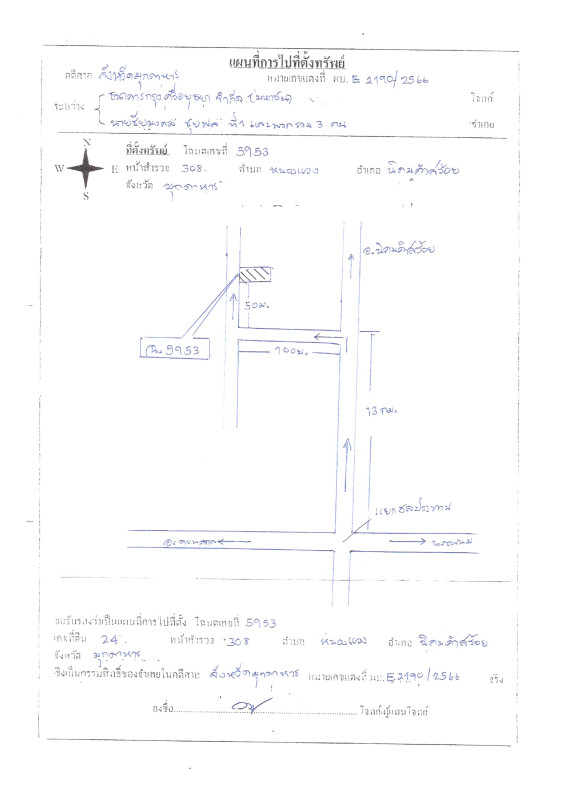 แผนที่การไปที่ตั้งทรัพย์
คดีศาล จังหวัดมุกดาหาร หมายเลขแดงที่ ผบ. E 2190/2566
ระหว่าง { ธนาคารกรุงศรีอยุธยา จำกัด (มหาชน) โจทก์
นายชัยมงคล ที่ 1 และพวกรวม 3 คน จำเลย
ที่ตั้งทรัพย์ โฉนดเลขที่ 5953
หน้าสำรวจ 308 ตำบล หนองแวง อำเภอ นิคมคำสร้อย
จังหวัด มุกดาหาร
N
W
E
S
อ.นิคมคำสร้อย
50ม.
5953
100ม.
13 กม.
แยกชลประทาน
อ.ดอนตาล
ขอรับรองว่าเป็นแผนที่การไปที่ตั้ง โฉนดเลขที่ 5953
เลขที่ดิน 24 หน้าสำรวจ 308 ตำบล หนองแวง อำเภอ นิคมคำสร้อย
จังหวัด มุกดาหาร
ซึ่งเป็นกรรมสิทธิ์ของจำเลยในคดีศาล จังหวัดมุกดาหาร หมายเลขแดงที่ ผบ. E 2190/2566 จริง
ลงชื่อ โจทก์/ผู้แทนโจทก์